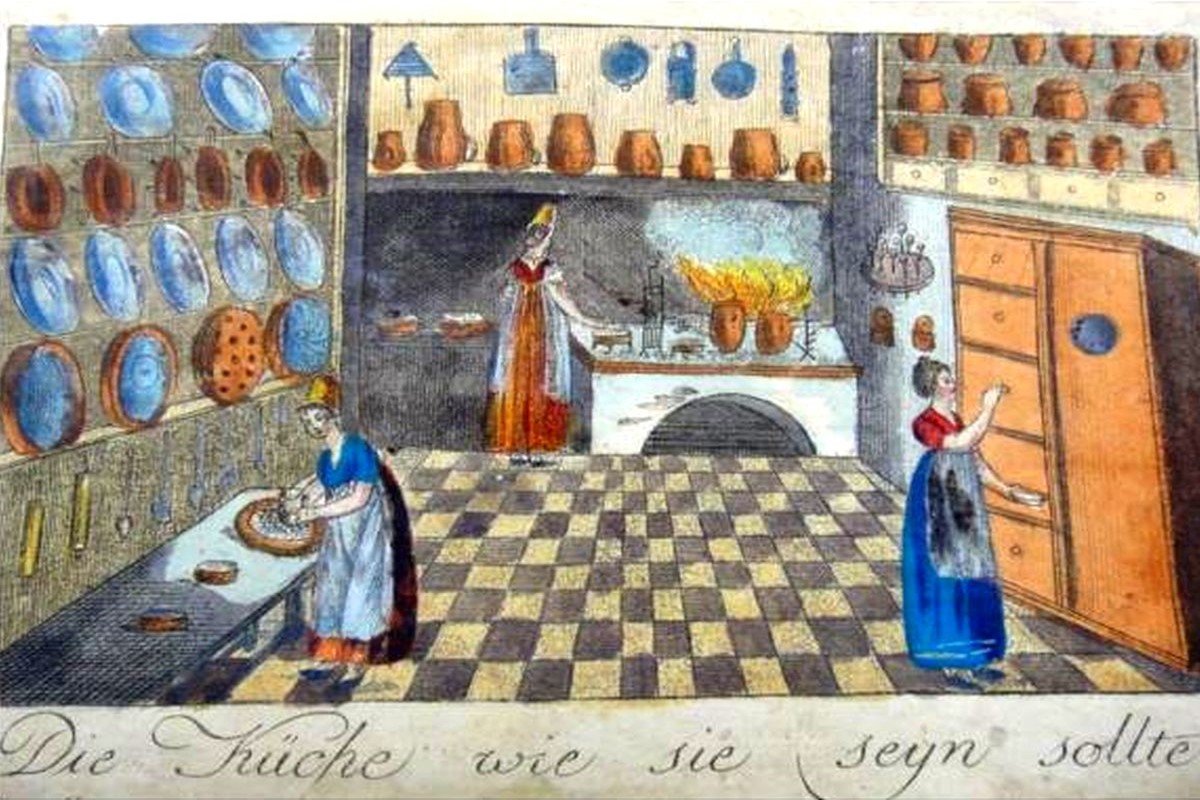 Die Küche wie sie seyn sollte